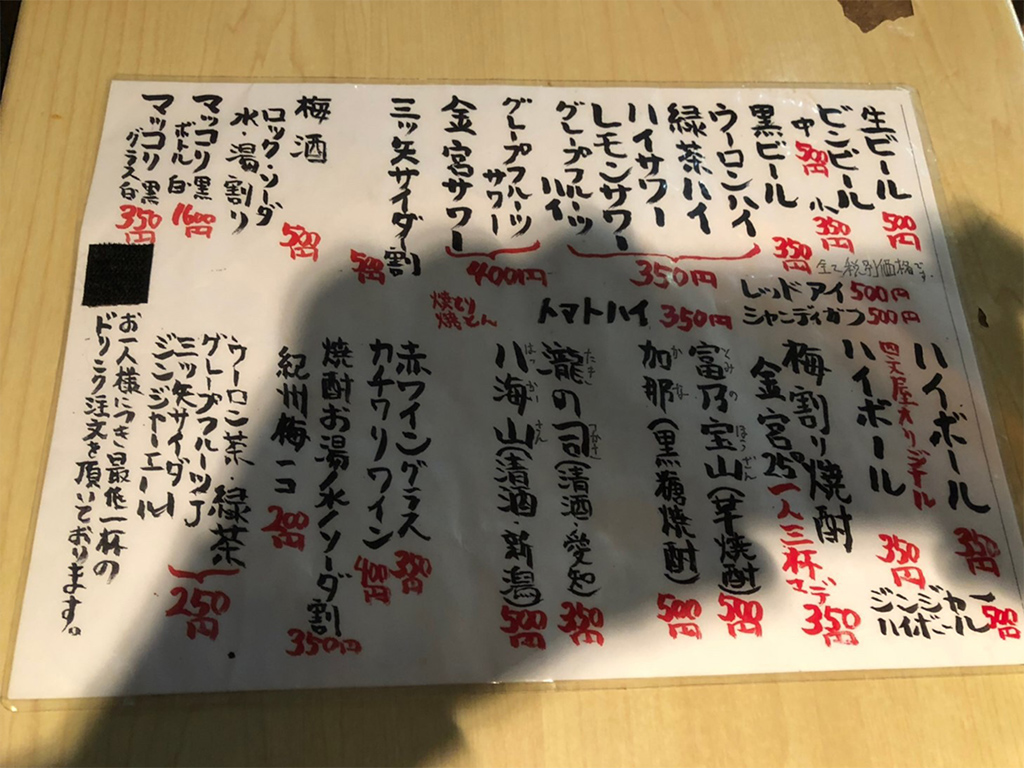 生ビール 500円
ビンビール
中 500円 小 350円
黒ビール 350円
ウーロンハイ
緑茶ハイ
ハイサワー
レモンサワー
グレープフルーツハイ
350円
グレープフルーツサワー
金宮サワー
400円
三ッ矢サイダー割
梅酒
ロック・ソーダ
水・湯割り 500円
マッコリ 黒
ボトル 白 1600円
マッコリ 黒
グラス 白 350円
全て税別価格です。
レッドアイ 500円
シャンディガフ 500円
トマトハイ 350円
焼とり
焼とん
ハイボール 350円
四文屋オリジナル
ハイボール 350円
ジンジャー
ハイボール 500円
梅割り焼酎
金宮25° 一人三杯マデ 350円
富乃宝山(芋焼酎) 500円
とみのほうざん
加那(黒糖焼酎) 500円
かな
瀧の司(清酒・愛知) 350円
八海山(清酒・新潟) 500円
はっかいさん
赤ワイングラス 350円
カチワリワイン
焼酎お湯/水/ソーダ割 350円
紀州梅一コ 200円
ウーロン茶・緑茶
グレープフルーツJ
三ッ矢サイダー
ジンジャーエール
250円
お一人様につき最低一杯の
ドリンク注文を頂いております。